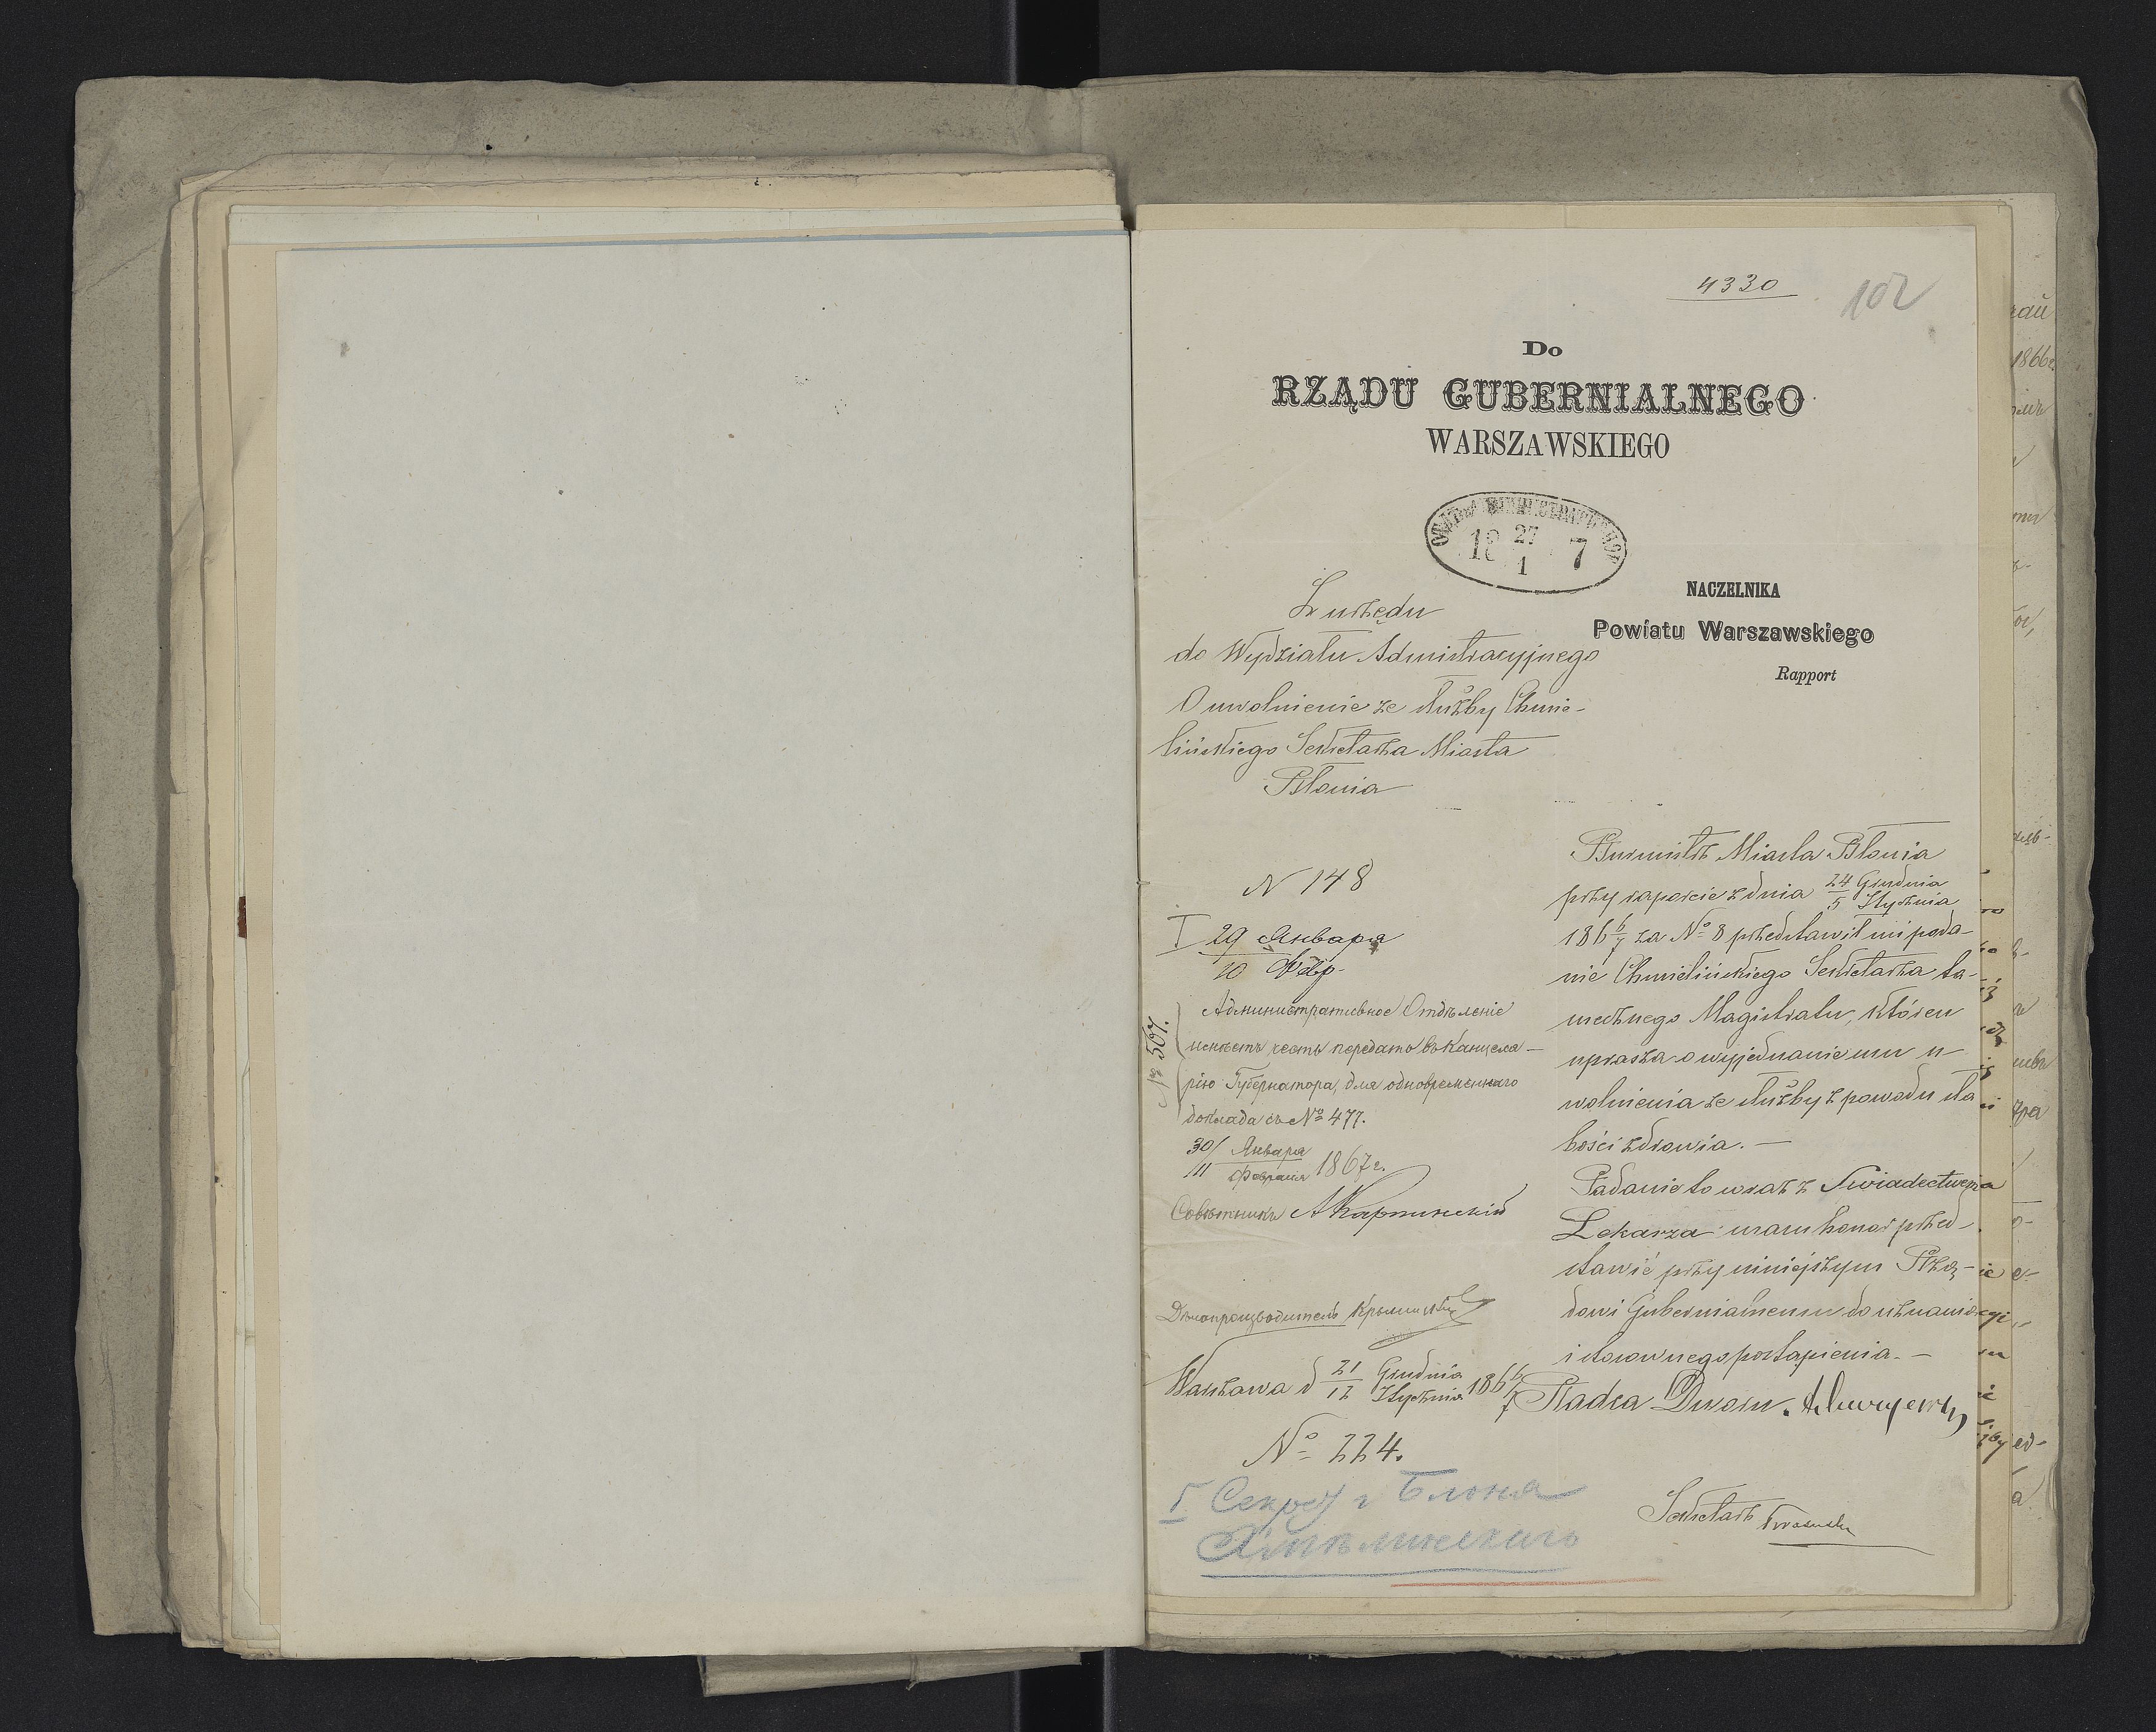 4330
102
Do
RZĄDU GUBERNIALNEGO
WARSZAWSKIEGO
18 27/1 7
NACZELNIKA
Powiatu Warszawskiego
Rapport
Z urzędu
do Wydziału Admistracyjnego
O uwolnienie ze służby Chmie-
lińskiego Sekretarza Miasta
Błonia
N 148
I 29 Января
10 Февр.
№ 567.
Административное Отдѣленіе
имѣетъ честь передать въ Канцеля-
рію Губернатора, для одновременнаго
доклада съ № 477.
30/11 Января/Февраля 1867 г.
Совѣтникъ
Дѣлопроизводитель
Warszawa d 21/12 Grudnia/Stycznia 186 6/7
№ 224.
I Секрет г Блоня
Burmistrz Miasta Błonia
przy raporcie z dnia 24 Grudnia/5 Stycznia
186 6/7 za № 8 przedstawił mi poda-
nie Chmielińskiego Sekretarza ta-
mecznego Magistratu, któren
uprasza o wyjednanie mu u-
wolnienia ze służby z powodu sła
bości zdrowia. —
Podanie to wraz z Świadectwem
Lekarza mam honor przed-
stawić przy niniejszym Rzą-
dowi Gubernialnemu do uznania
i stosownego postąpienia. —
Radca Dworu
Sekretarz